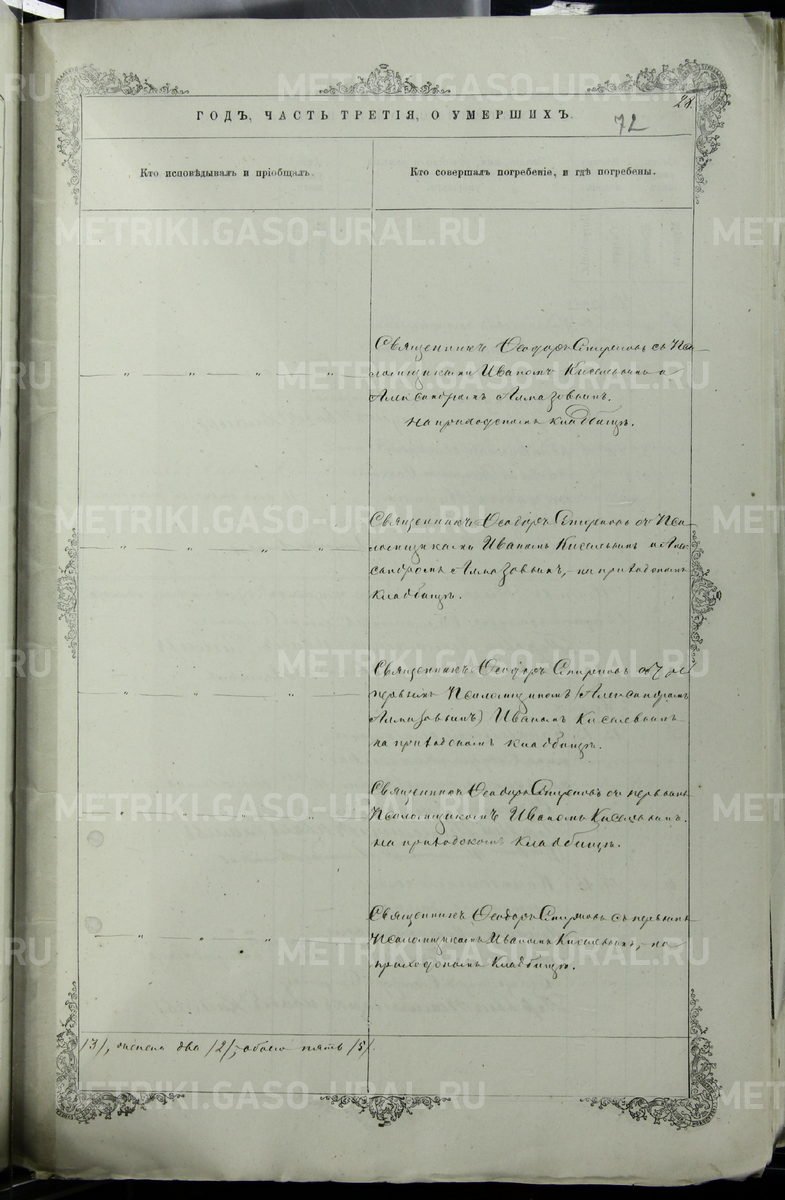 28.
ГОДЪ, ЧАСТЬ ТРЕТІЯ, О УМЕРШИХЪ.
72
Кто исповѣдывалъ и пріобщалъ.
Кто совершалъ погребеніе, и гдѣ погребены.
Священникъ Ѳеодоръ Смирновъ съ Пса-
ломщиками Иваномъ Киселевымъ и
Александромъ Алмазовымъ.
На приходскомъ кладбищѣ.
Священникъ Ѳеодоръ Смирновъ съ Пса-
ломщиками Иваномъ Киселевымъ и Алек-
сандромъ Алмазовымъ, на приходскомъ
кладбищѣ.
Священникъ Ѳеодоръ Смирновъ
первымъ Псаломщикомъ (Александромъ
Алмазовымъ) Иваномъ Киселевымъ
на приходскомъ кладбищѣ.
Священникъ Ѳеодоръ Смирновъ съ первымъ
Псаломщикомъ Иваномъ Киселевымъ.
на приходскомъ кладбищѣ.
Священникъ Ѳеодоръ Смирновъ съ первымъ
Псаломщикомъ Иваномъ Киселевымъ, на
приходскомъ кладбищѣ.
/3/, женска два /2/, обоего пять /5/.
METRIKI.GASO-URAL.RU